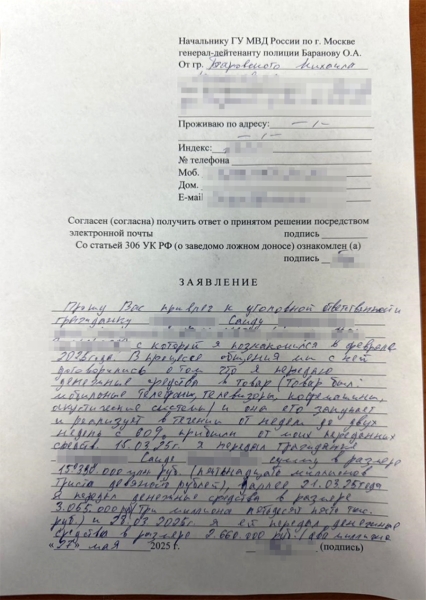 Начальнику ГУ МВД России по г. Москве
генерал-лейтенанту полиции Баранову О.А.
От гр. Михаила
Проживаю по адресу: — / —
— / —
Индекс:
№ телефона
Моб.
Дом.
E-mail
Согласен (согласна) получить ответ о принятом решении посредством
электронной почты подпись
Со статьей 306 УК РФ (о заведомо ложном доносе) ознакомлен (а)
подпись
ЗАЯВЛЕНИЕ
Прошу Вас привлеч к уголовной ответственности
гражданку Саиду
с которой я познакомился в феврале
2025 года. В процессе общения мы с ней
договорились о том что я передаю
денежные средства в товар (товар был:
мобильные телефоны, телевизоры, кофемашины,
акустические системы) и она его закупает
и реализует в течении от недели до двух
недель с 60% прибыли от моих переданных
средств. 15.03.25г. я передал гражданке
Саиде сумму в размере
15 390 000 руб. (пятнадцать миллионов
триста девяносто рублей), далее 21.03.25года
я передал денежные средства в размере
3.065.000 (три миллиона шестьдесят пять тыс.
руб.) и 2025г. я ей передал денежные
средства в размере 2 660 000 руб. (два миллиона
«27» мая 2025 г. (подпись)